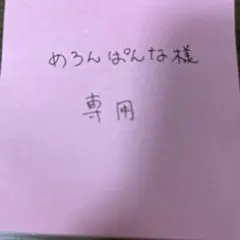 めろんぱんな様
専用